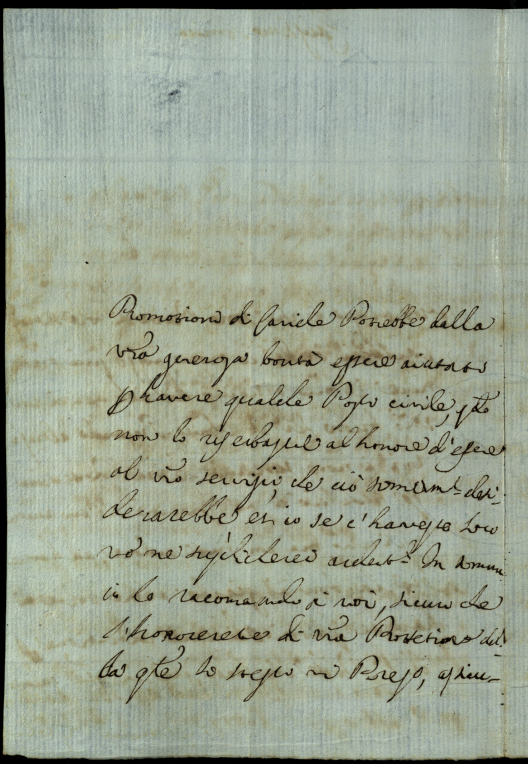 Promotione di Cariche Potrebbe dalla
vr̃a generoza bontà essere aiutato
ꝑ havere qualche Posto civile, q̃do
non lo riserbaste al honore d'essere
al vr̃o servizio, che ciò somam.te desi-
derarebbe, et io se c'havesse loco
vo ne supplicherei In somma
io lo racomando a voi, sicuro che
l'honorerete di vr̃a Protetione del-
la q̃le lo stesso vi Prego, assicu-